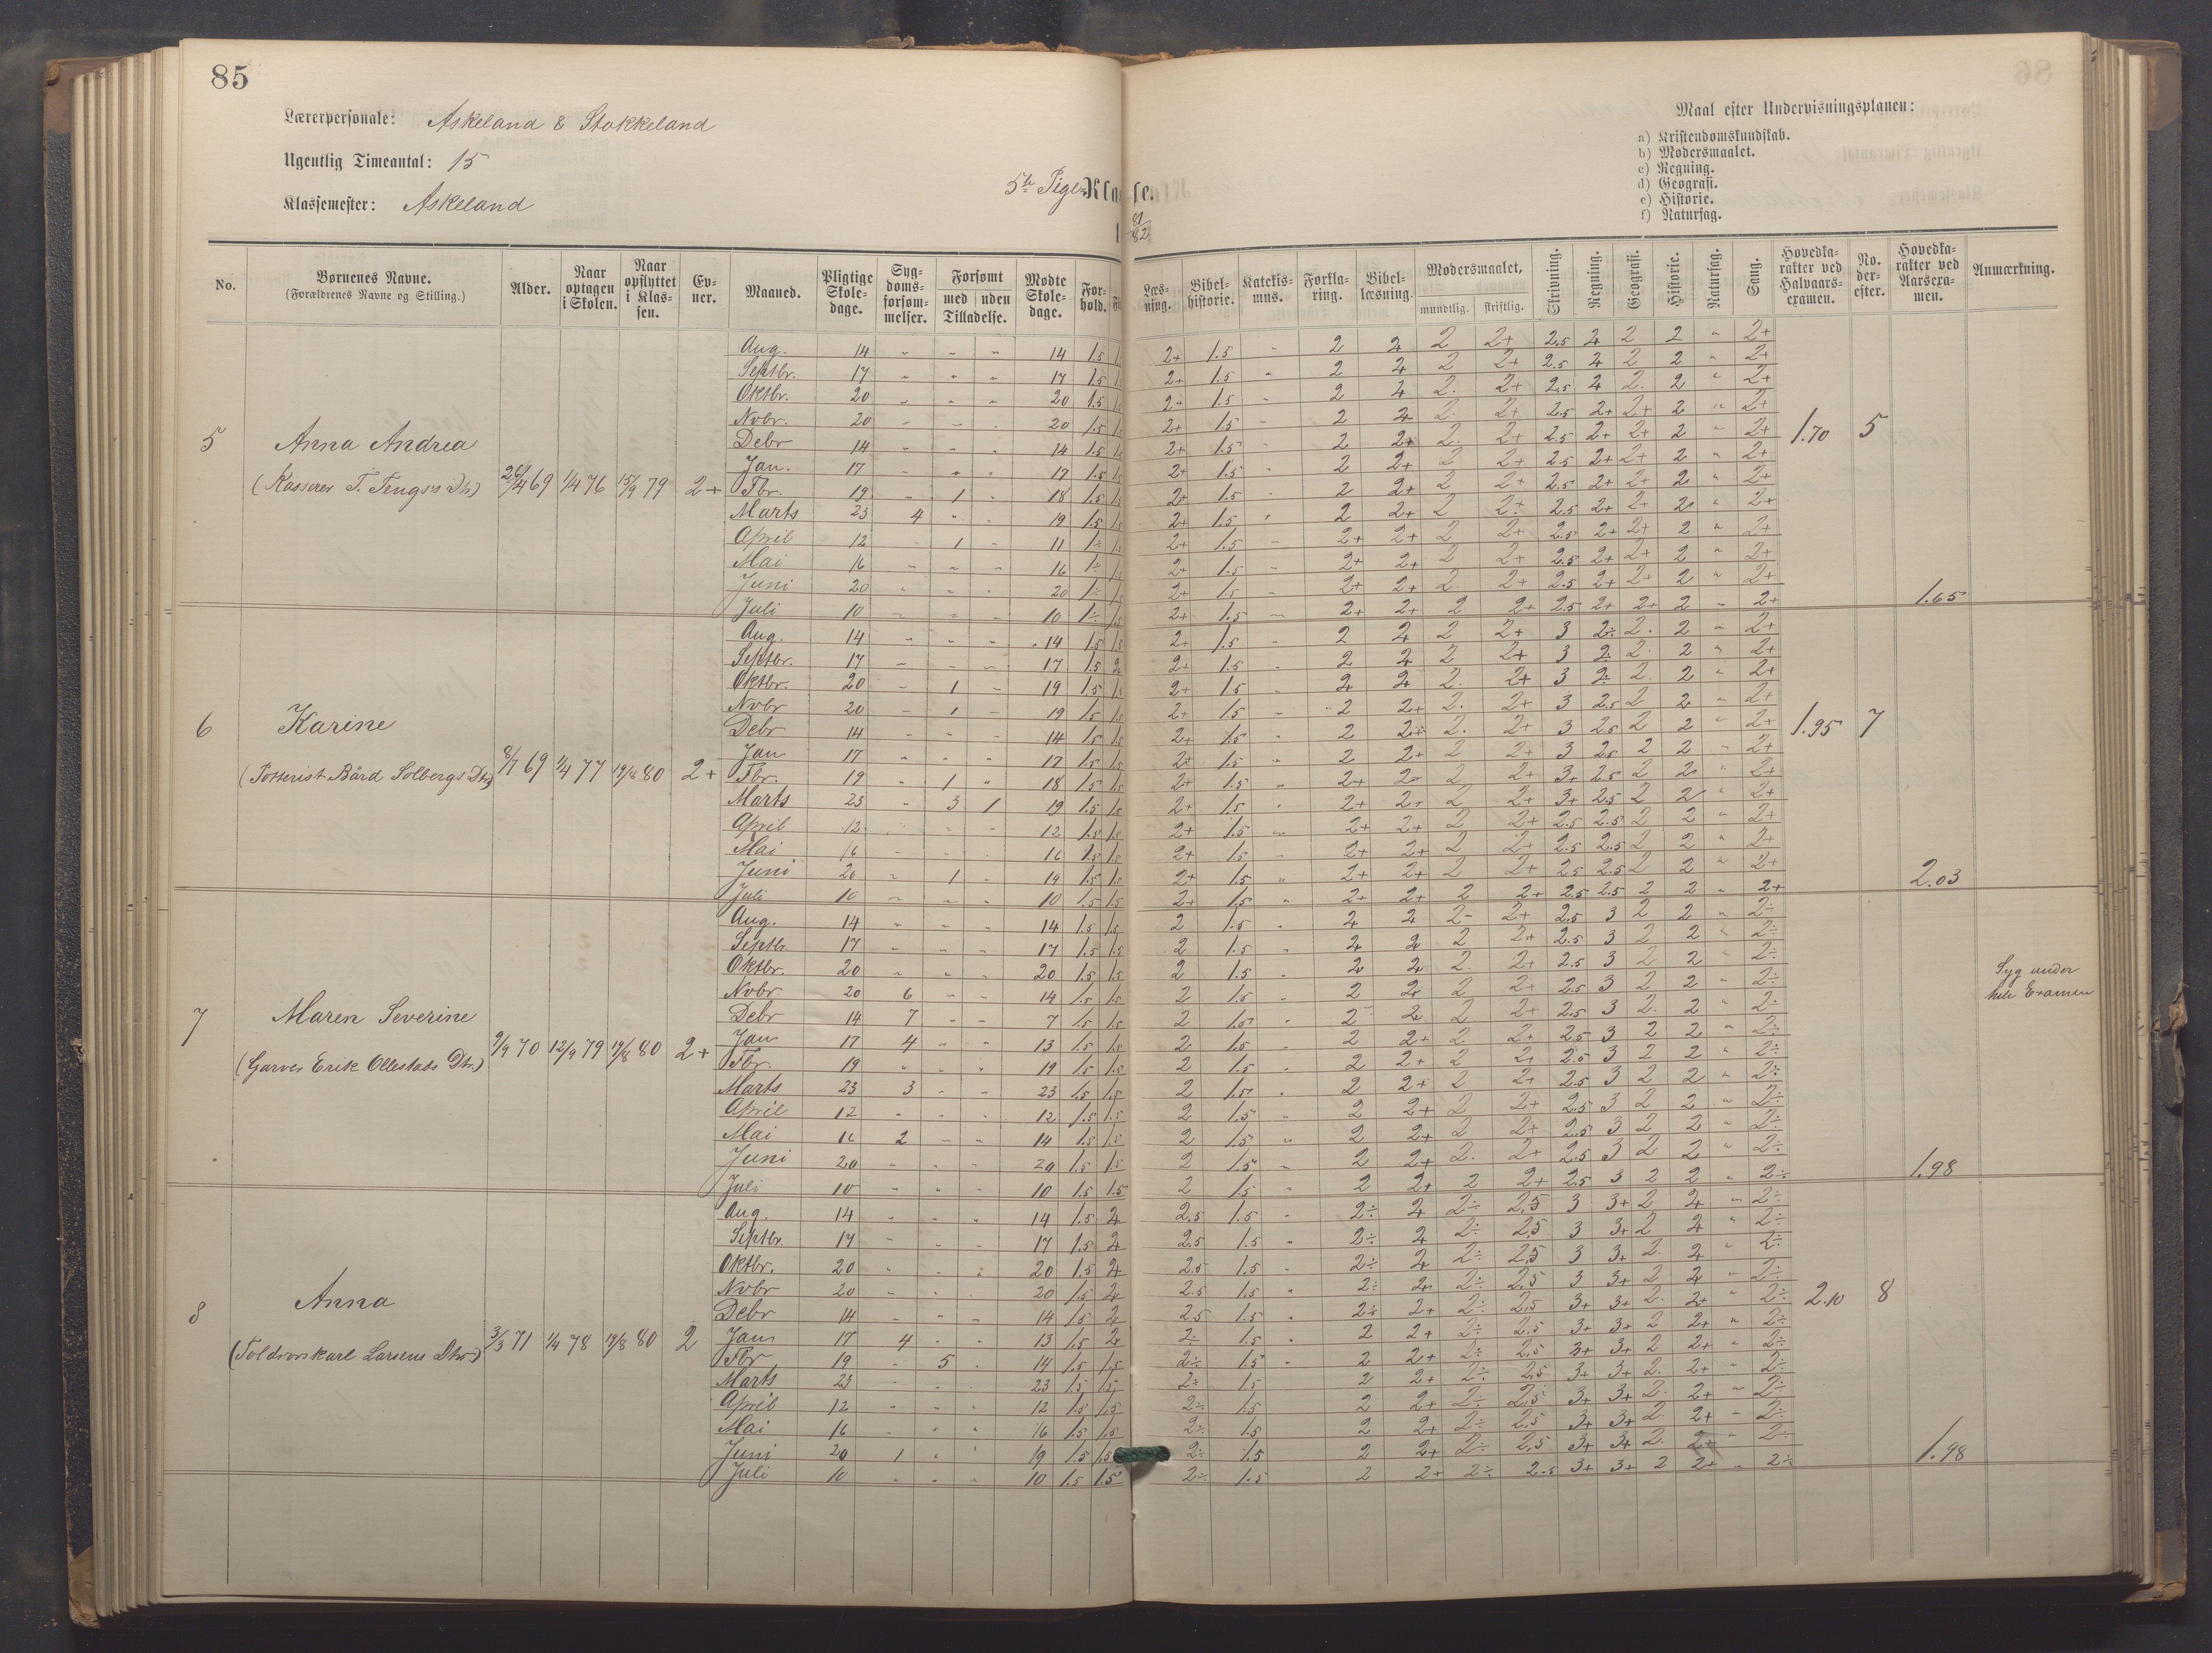 85
Lærerpersonale: Askeland & Stokkeland
Ugentlig Timeantal: 15
Klassemester: Askeland
5te Pige Klasse.
81/82
Maal efter Undervisningsplanen:
a) Kristendomskundskab.
b) Modersmaalet.
c) Regning.
d) Geografi.
e) Historie.
f) Naturfag.
No. Børnenes Navne. (Forældrenes Navne og Stilling.) Alder. Naar optagen i Skolen. Naar opflyttet i Klassen. Evner. Maaned. Pligtige Skoledage. Sygdomsforsømmelser. Forsømt med uden Tilladelse. Mødte Skoledage. Forhold.
Læsning. Bibelhistorie. Katekismus. Forklaring. Bibellæsning. Modersmaalet, mundtlig. skriftlig. Skrivning. Regning. Geografi. Historie. Naturfag. Sang. Hovedkarakter ved Halvaarsexamen. No. derefter. Hovedkarakter ved Aarsexamen. Anmærkning.
5 Anna Andrea
(Kasserer T. Tengs's Dtr) 26/4 69 1/4 76 15/9 79 2+
Aug. 14 " " " 14 1.5 2+ 1.5 " 2 2 2 2+ 2.5 2 2 2 " 2+
Septbr. 17 " " " 17 1.5 2+ 1.5 " 2 2 2 2+ 2.5 2 2 2 " 2+
Oktbr. 20 " " " 20 1.5 2+ 1.5 " 2 2 2 2+ 2.5 2 2 2 " 2+
Nvbr. 20 " " " 20 1.5 2+ 1.5 " 2 2 2 2+ 2.5 2+ 2+ 2 " 2+
Debr 14 " " " 14 1.5 2+ 1.5 " 2 2+ 2 2+ 2.5 2+ 2+ 2 " 2+ 1.70 5
Jan. 17 " " " 17 1.5 2+ 1.5 " 2 2+ 2 2+ 2.5 2+ 2+ 2 " 2+
Fbr. 19 " 1 " 18 1.5 2+ 1.5 " 2 2+ 2 2+ 2.5 2+ 2+ 2 " 2+
Marts 23 4 " " 19 1.5 2+ 1.5 " 2 2+ 2 2+ 2.5 2+ 2+ 2 " 2+
April 12 " 1 " 11 1÷ 2+ 1.5 " 2+ 2+ 2 2+ 2.5 2+ 2+ 2 " 2+
Mai 16 " " " 16 1÷ 2+ 1.5 " 2+ 2+ 2 2+ 2.5 2+ 2+ 2 " 2+
Juni 20 " " " 20 1÷ 2+ 1.5 " 2+ 2+ 2 2+ 2.5 2+ 2+ 2 " 2+
Juli 10 " " " 10 1÷ 2+ 1.5 " 2+ 2+ 2 2+ 2.5 2+ 2+ 2 " 2+ 1.65
6 Karine
(Bård Solbergs Dtr) 8/7 69 1/4 77 19/8 80 2+
Aug. 14 " " " 14 1.5 1.5 2+ 1.5 " 2 2 2 2+ 3 2÷ 2 2 " 2+
Septbr. 17 " " " 17 1.5 2 2+ 1.5 " 2 2 2 2+ 3 2÷ 2 2 " 2+
Oktbr. 20 " 1 " 19 1.5 1.5 2+ 1.5 " 2 2 2 2+ 3 2÷ 2 2 " 2+
Nvbr 20 " 1 " 19 1.5 1.5 2+ 1.5 " 2 2+ 2 2+ 3 2.5 2 2 " 2+
Debr 14 " " " 14 1.5 1.5 2+ 1.5 " 2 2+ 2 2+ 3 2.5 2 2 " 2+ 1.95 7
Jan 17 " " " 17 1.5 1.5 2+ 1.5 " 2 2+ 2 2+ 3 2.5 2 2 " 2+
Fbr. 19 " 1 " 18 1.5 1.5 2+ 1.5 " 2+ 2+ 2 2+ 3+ 2.5 2 2 " 2+
Marts 23 " 3 1 19 1.5 1.5 2+ 1.5 " 2+ 2+ 2 2+ 3+ 2.5 2 2 " 2+
April 12 " " " 12 1.5 1.5 2+ 1.5 " 2+ 2+ 2 2+ 2.5 2.5 2 2 " 2+
Mai 16 " " " 16 1.5 1.5 2+ 1.5 " 2+ 2+ 2 2+ 2.5 2.5 2 2 " 2+
Juni 20 " 1 " 19 1.5 1.5 2+ 1.5 " 2+ 2+ 2 2+ 2.5 2.5 2 2 " 2+
Juli 10 " " " 10 1.5 1.5 2+ 1.5 " 2+ 2+ 2 2+ 2.5 2.5 2 2 " 2+ 2.03
7 Maren Severine
(Garver Erik Ollestads Dtr.) 9/9 70 12/9 79 19/8 80 2+
Aug. 14 " " " 14 1.5 1.5 2 1.5 " 2 2 2 2+ 2.5 3 2 2 " 2÷
Septbr 17 " " " 17 1.5 1.5 2 1.5 " 2 2 2 2+ 2.5 3 2 2 " 2÷
Oktbr. 20 " " " 20 1.5 1.5 2 1.5 " 2 2 2 2+ 2.5 3 2 2 " 2÷
Nvbr 20 6 " " 14 1.5 1.5 2 1.5 " 2 2 2 2+ 2.5 3 2 2 " 2÷ Syg under hele Examen
Debr 14 7 " " 7 1.5 1.5 2 1.5 " 2 2 2 2+ 2.5 3 2 2 " 2÷
Jan 17 4 " " 13 1.5 1.5 2 1.5 " 2 2+ 2 2+ 2.5 3 2 2 " 2÷
Fbr. 19 " " " 19 1.5 1.5 2 1.5 " 2 2+ 2 2+ 2.5 3 2 2 " 2÷
Marts 23 3 " " 23 1.5 1.5 2 1.5 " 2 2+ 2 2+ 2.5 3 2 2 " 2÷
April 12 " " " 12 1.5 1.5 2 1.5 " 2 2+ 2 2+ 2.5 3 2 2 " 2÷
Mai 16 2 " " 14 1.5 1.5 2 1.5 " 2 2+ 2 2+ 2.5 3 2 2 " 2÷
Juni 20 " " " 20 1.5 1.5 2 1.5 " 2 2+ 2 2+ 2.5 3 2 2 " 2÷
Juli 10 " " " 10 1.5 1.5 2 1.5 " 2 2+ 2 2+ 2.5 3 2 2 " 2÷ 1.98
8 Anna
(Larsens Dtr) 3/3 71 1/4 78 19/8 80 2
Aug. 14 " " " 14 1.5 2 2.5 1.5 " 2÷ 2 2÷ 2.5 3 3+ 2 2 " 2÷
Septbr. 17 " " " 17 1.5 2 2.5 1.5 " 2÷ 2 2÷ 2.5 3 3+ 2 2 " 2÷
Oktbr. 20 " " " 20 1.5 2 2.5 1.5 " 2÷ 2 2÷ 2.5 3 3+ 2 2 " 2÷
Nvbr 20 " " " 20 1.5 2 2.5 1.5 " 2÷ 2 2÷ 2.5 3 3+ 2 2 " 2÷
Debr 14 " " " 14 1.5 2 2.5 1.5 " 2÷ 2+ 2÷ 2.5 3+ 3+ 2 2+ " 2÷ 2.10 8
Jan 17 4 " " 13 1.5 2 2÷ 1.5 " 2 2+ 2÷ 2.5 3+ 3+ 2 2+ " 2÷
Fbr 19 " 5 " 14 1.5 1.5 2÷ 1.5 " 2 2+ 2÷ 2.5 3+ 3+ 2 2+ " 2÷
Marts 23 " " " 23 1.5 1.5 2÷ 1.5 2 2+ 2÷ 2.5 3+ 3+ 2 2+ " 2÷
April 12 " " " 12 1.5 1.5 2÷ 1.5 2 2+ 2÷ 2.5 3+ 3+ 2 2+ " 2÷
Mai 16 " " " 16 1.5 1.5 2÷ 1.5 2 2+ 2÷ 2.5 3+ 3+ 2 2+ " 2÷
Juni 20 1 " " 19 1.5 1.5 2÷ 1.5 2 2+ 2÷ 2.5 3+ 3+ 2 2+ " 2÷
Juli 10 " " " 10 1.5 1.5 2÷ 1.5 2 2+ 2÷ 2.5 3+ 3+ 2 2+ " 2÷ 1.98